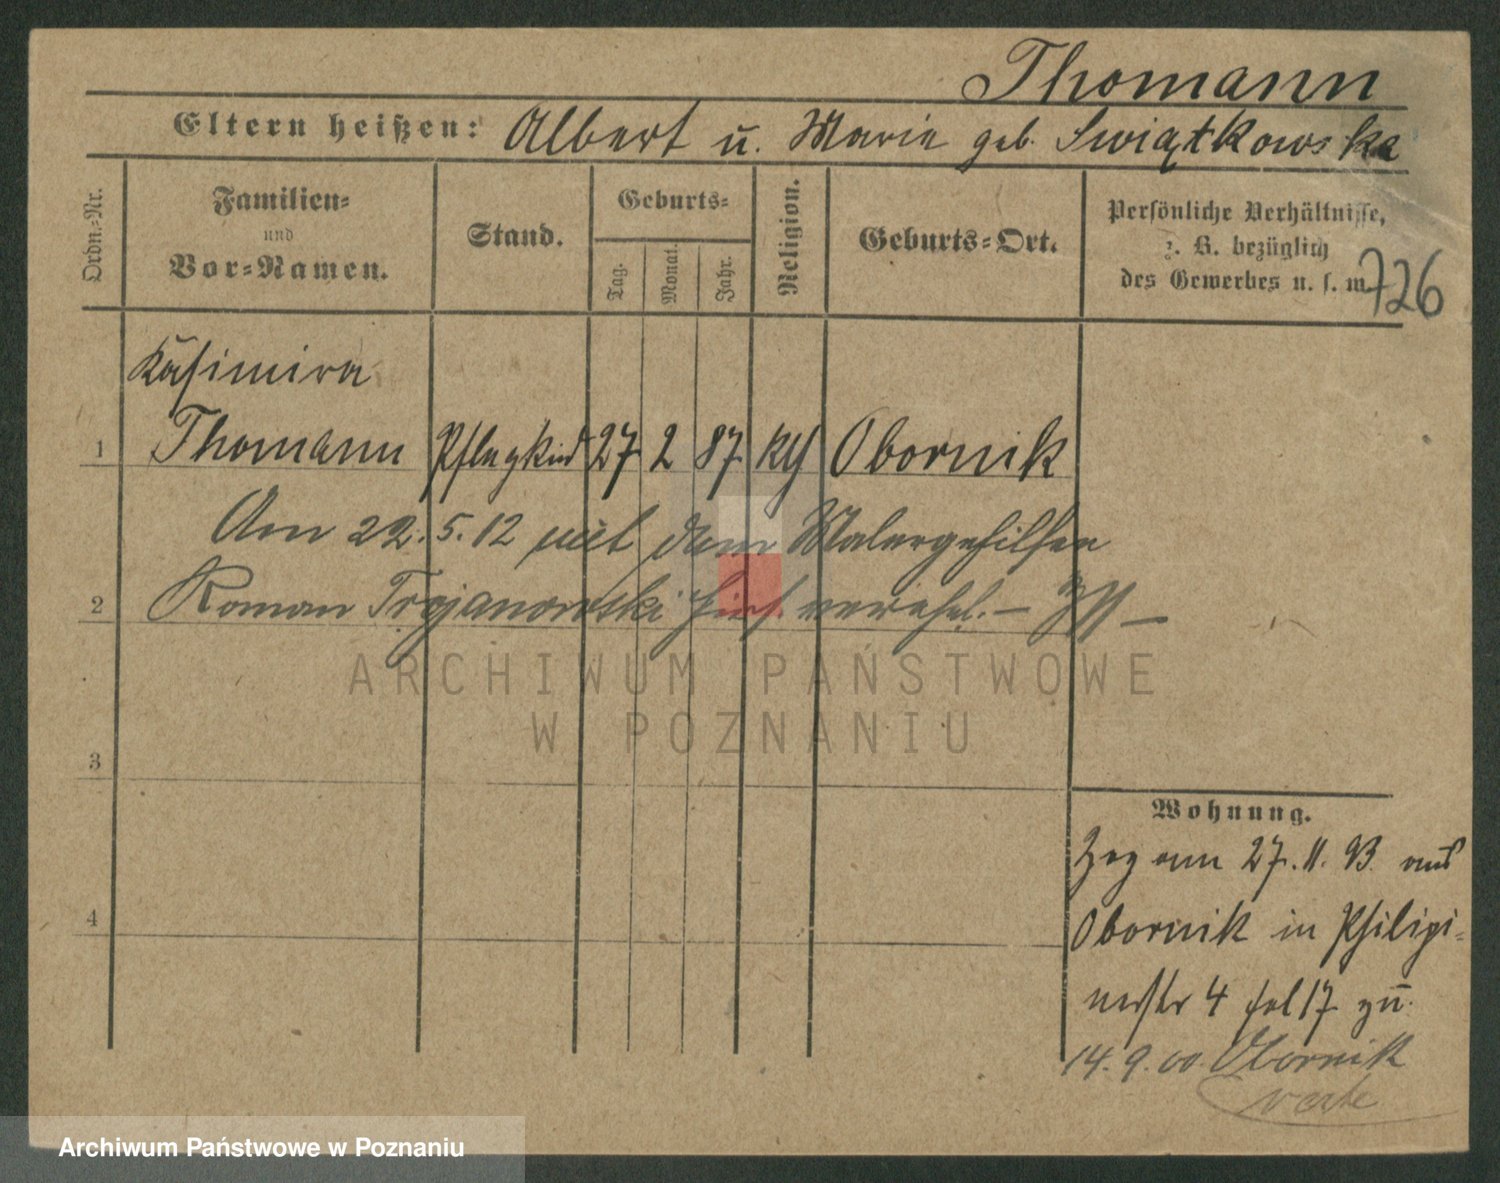 Thomann
Eltern heißen: Albert u. Marie geb. Swiątkowska
Ordn.-Nr.
Familien-
und
Vor-Namen.
Stand.
Geburts-
Tag.
Monat.
Jahr.
Religion.
Geburts-Ort.
Persönliche Verhältnisse,
z. B. bezüglich
des Gewerbes u. s. w.
726
Kasimira
1 Thomann Pflegkind 27 2 87 kth Obornik
Am 22.5.12 mit dem Malergehilfen
2 Roman Trojanowski hies. verehel. —
3
4
Wohnung.
Zog am 27.11.93 aus
Obornik in Philipi-
nerstr 4 fol 17 zu.
14.9.00 Obornik
verte
ARCHIWUM PAŃSTWOWE
W POZNANIU
Archiwum Państwowe w Poznaniu